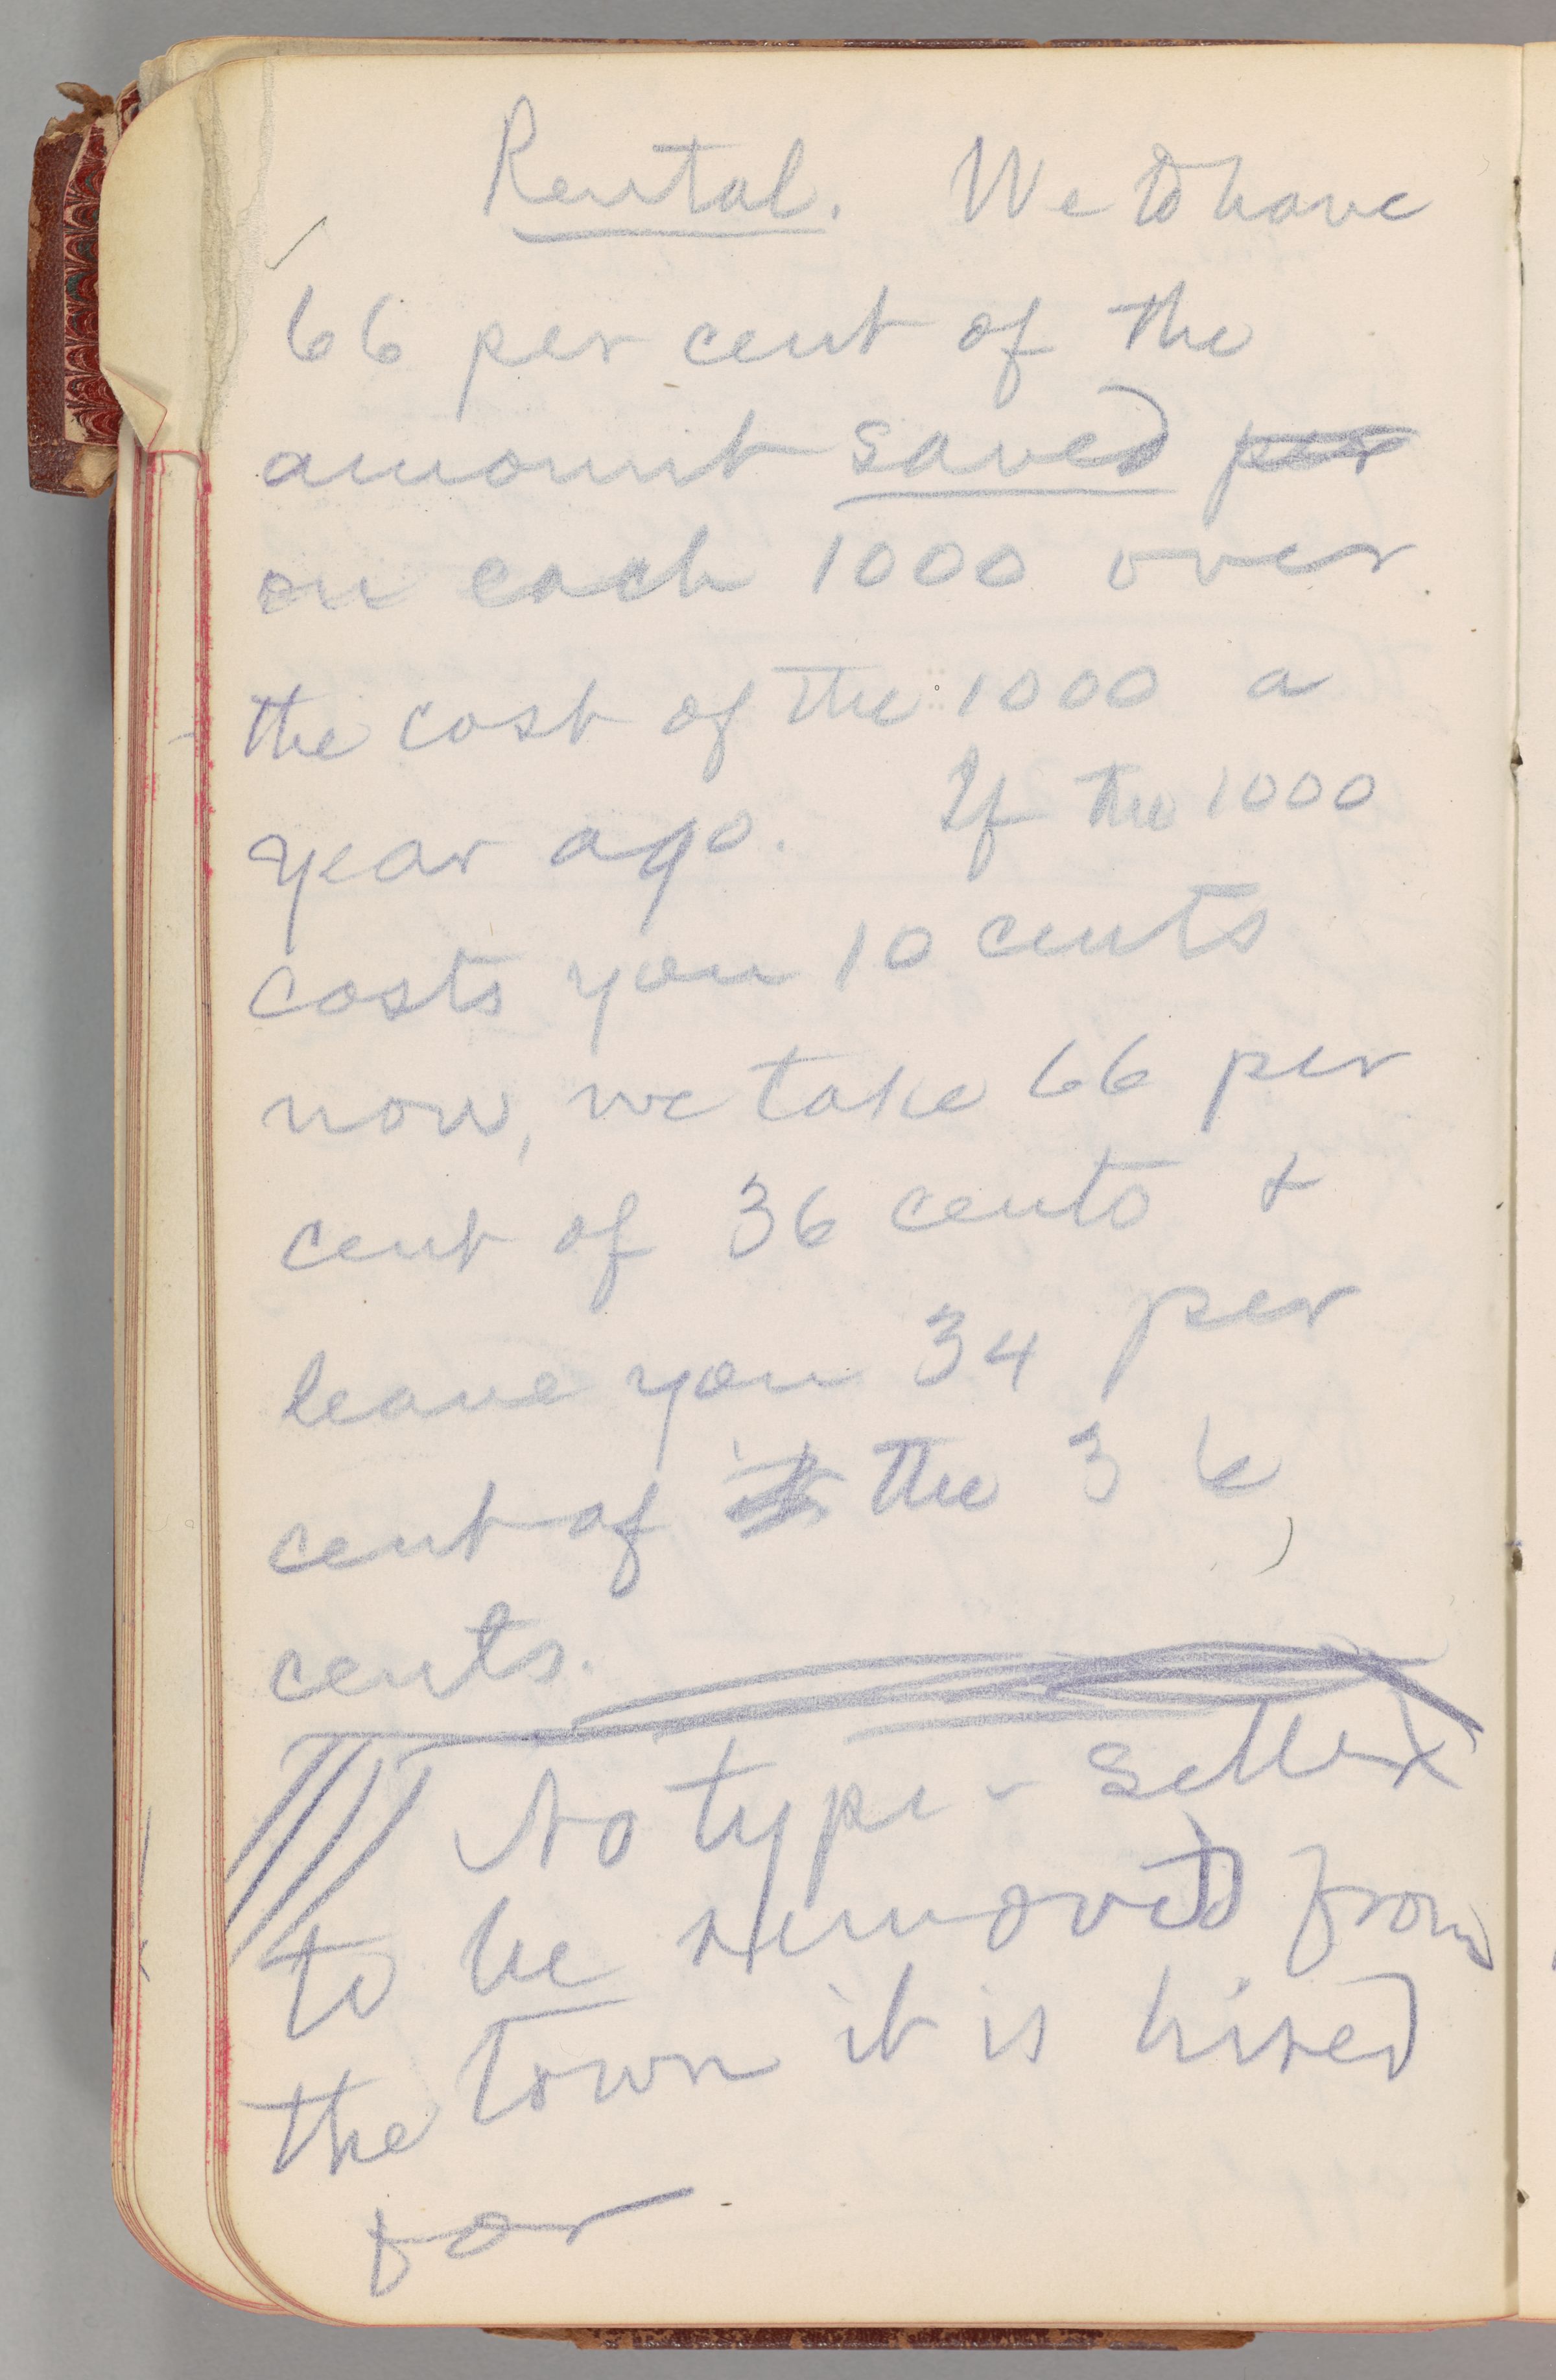 Rental. We to have
66 per cent of the
amount saved per
on each 1000 over
the cost of the 1000 a
year ago. If the 1000
costs you 10 cents
now, we take 66 per
cent of 36 cents &
leave you 34 per
cent of the 36
cents.
No type-setter
to be removed from
the town it is hired
for